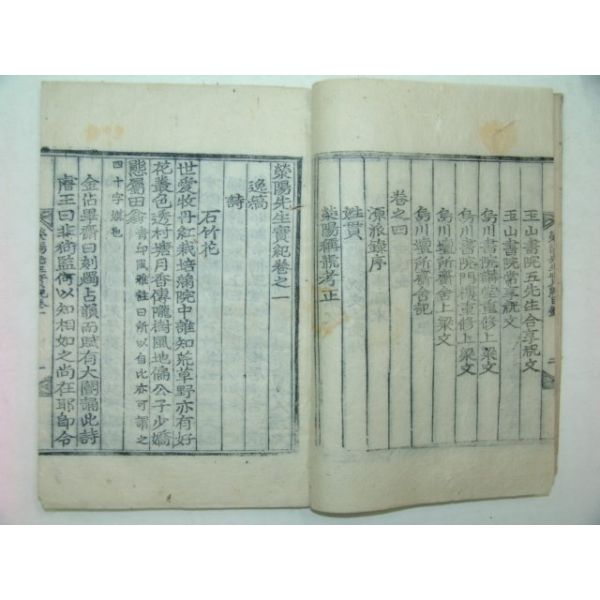 玉山書院五先生合享祝文
玉山書院常享祝文
烏川書院講堂重修上樑文
烏川書院門樓重修上樑文
烏川壇所齋舍上樑文
烏川壇所齋舍記
卷之四
源派錄序
姓貫
滎陽稱號考正
滎陽先生實紀卷之一
逸稿
詩
石竹花
世愛牧丹紅栽培滿院中誰知荒草野亦有好
花叢色透村塘月香傳隴樹風地偏公子少嬌
態屬田翁
四十字
金佔畢齋曰刻燭占韻而賦有大閹誦此詩
睿王曰非狗監何以知相如之尚在耶卽令